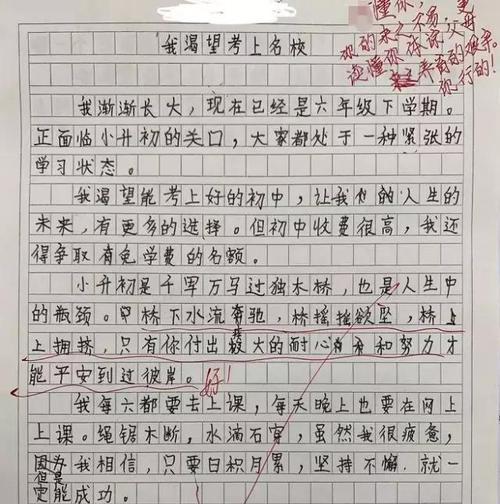 懂你，
你的来之不易，
我渴望考上名校
读懂你
你行的！
我渐渐长大，现在已经是六年级下学期。
正面临小升初的关口，大家都处于一种紧张的
学习状态。
我渴望能考上好的初中，让我们的人生的
未来，有更多的选择。但初中收费很高，我还
得争取有免学费的名额。
小升初是千军万马过独木桥，也是人生中
的瓶颈。桥下水流奔驰，桥摇摇欲坠，桥上
上拥挤，只有你付出极大的耐心和努力才
能平安到过彼岸。好！
我每六都要去上课，每天晚上也要在网上
上课。绳锯木断，水滴石穿，虽然我很疲惫，
但是我相信，只要日积月累，坚持不懈，就一
定能成功。